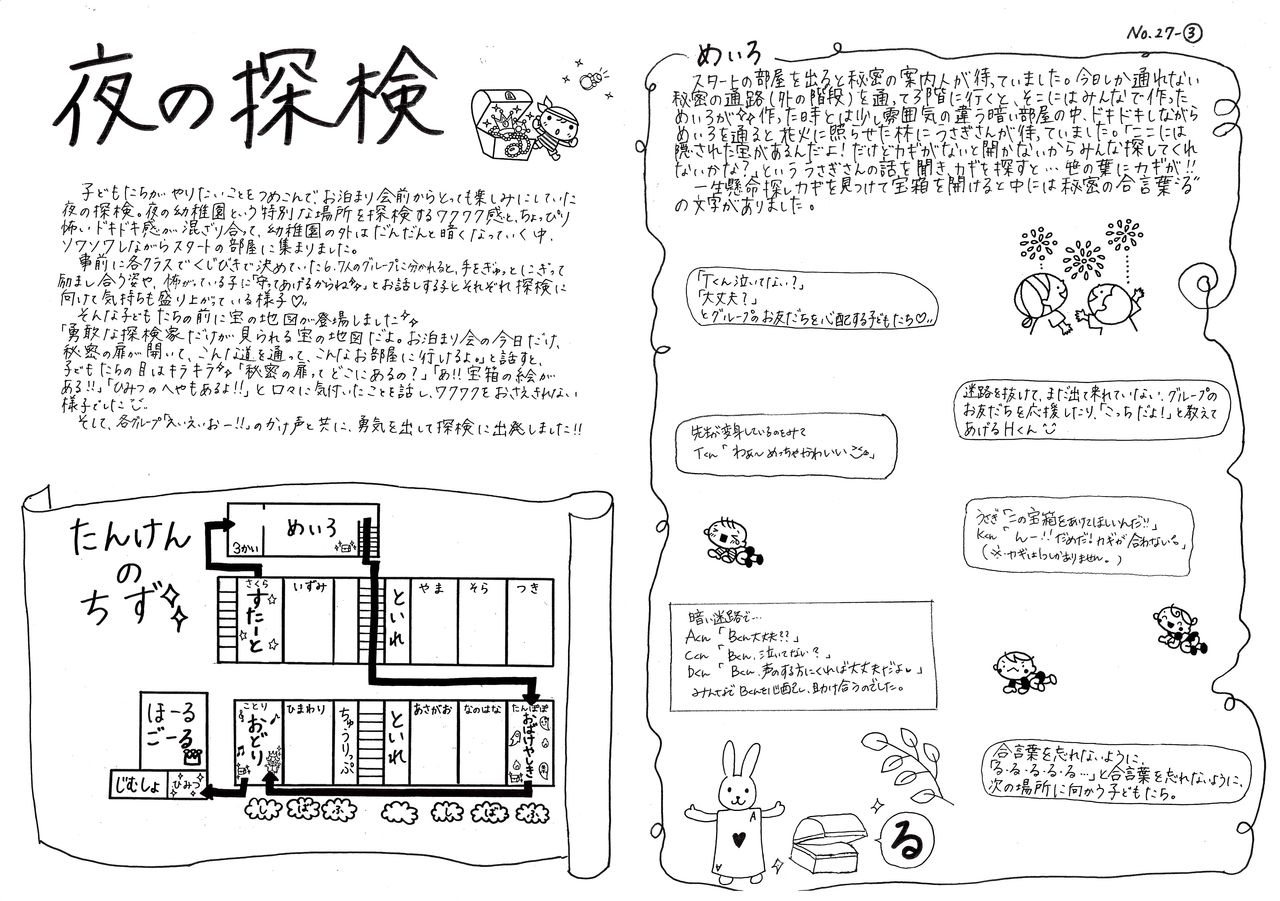 夜の探検
子どもたちが やりたいことをつめこんで、お泊まり会前からとっても楽しみにしていた
夜の探検。夜の幼稚園という特別な場所を探検するワクワク感と、ちょっぴり
怖いドキドキ感が混ざり合って、幼稚園の外はだんだんと暗くなっていく中、
ソワソワしながらスタートの部屋に集まりました。
事前に各クラスでくじびきで決めていた6.7人のグループに分かれると、手をぎゅっとにぎって
励まし合う姿や、怖がっている子に「守ってあげるからね」とお話しする子とそれぞれ探検に
向けて気持ちも盛り上がっている様子♡
そんな子どもたちの前に宝の地図が登場しました
「勇敢な探検家だけが見られる宝の地図だよ。お泊まり会の今日だけ、
秘密の扉が開いて、こんな道を通って、こんなお部屋に行けるよ。」と話すと、
子どもたちの目はキラキラ「秘密の扉ってどこにあるの？」「あ!!宝箱の絵が
ある!!」「ひみつのへやもあるよ!!」と口々に気付いたことを話し、ワクワクをおさえきれない
様子でした
そして、各グループ「えいえいおー!!」のかけ声と共に、勇気を出して探検に出発しました!!
たんけん
の
ちず
めいろ
3かい
さくら
すたーと
いずみ
といれ
やま
そら
つき
ことり
おどり
ひまわり
ちゅうりっぷ
といれ
あさがお
なのはな
たんぽぽ
おばけやしき
ほーる
ごーる
じむしょ
ひみつ
No.27-③
めいろ
スタートの部屋を出ると秘密の案内人が待っていました。今日しか通れない
秘密の通路(外の階段)を通って3階に行くと、そこにはみんなで作った
めいろが 作った時とは少し雰囲気の違う暗い部屋の中、ドキドキしながら
めいろを通ると花火に照らせた林にうさぎさんが待っていました。「ここには
隠された宝があるんだよ！だけどカギがないと開かないからみんな探してくれ
ないかな？」といううさぎさんの話を聞き、カギを探すと…笹の葉にカギが!!
一生懸命探しカギを見つけて宝箱を開けると中には秘密の合言葉“る”
の文字がありました。
「Tくん泣いてない？」
「大丈夫？」
とグループのお友だちを心配する子どもたち♡
迷路を抜けて、まだ出て来れていない、グループの
お友だちを応援したり、「こっちだよ！」と教えて
あげるHくん
先生が変身しているのをみて
Tくん「わぁ〜めっちゃかわいい」
うさぎ「この宝箱をあけてほしいんだ!!」
Kくん「んー!!だめだ！カギが合わない。」
(※カギは1つしかありません。)
暗い迷路で…
Aくん「Bくん大丈夫??」
Cくん「Bくん、泣いてない？」
Dくん「Bくん、声のする方にくれば大丈夫だよ」
みんなでBくんを心配し、助け合うのでした。
合言葉を忘れないように、
「る・る・る・る・る…」と合言葉を忘れないように、
次の場所に向かう子どもたち。
A
る